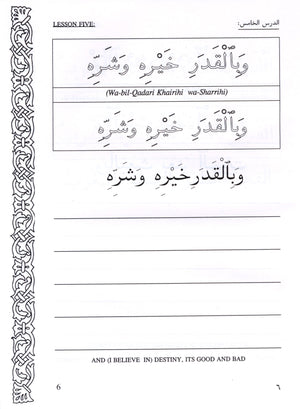 LESSON FIVE: الدرس الخامس:
وَبِٱلْقَدَرِ خَيْرِهِ وَشَرِّهِ
(Wa-bil-Qadari Khairihi wa-Sharrihi)
وَبِٱلْقَدَرِ خَيْرِهِ وَشَرِّهِ
وَبِالْقَدَرِ خَيْرِهِ وَشَرِّهِ
AND (I BELIEVE IN) DESTINY, ITS GOOD AND BAD
6 ٦